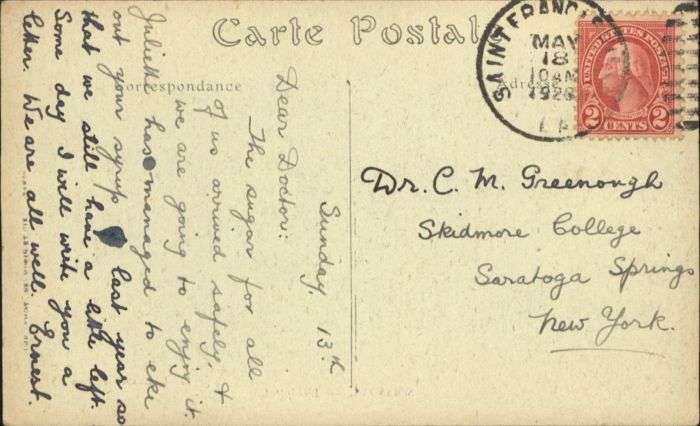 Carte Postale
Correspondance
Adresse
SAINT FRANCIS
MAY
18
10 AM
UNITED STATES POSTAGE
2 CENTS 2
Sunday, 13th
Dear Doctor:
The sugar for all
of us arrived safely, &
we are going to enjoy it.
Juliette has managed to eke
out your syrup last year so
that we still have a little left.
Some day I will write you a
letter. We are all well. Ernest.
Dr. C. M. Greenough
Skidmore College
Saratoga Springs
New York.